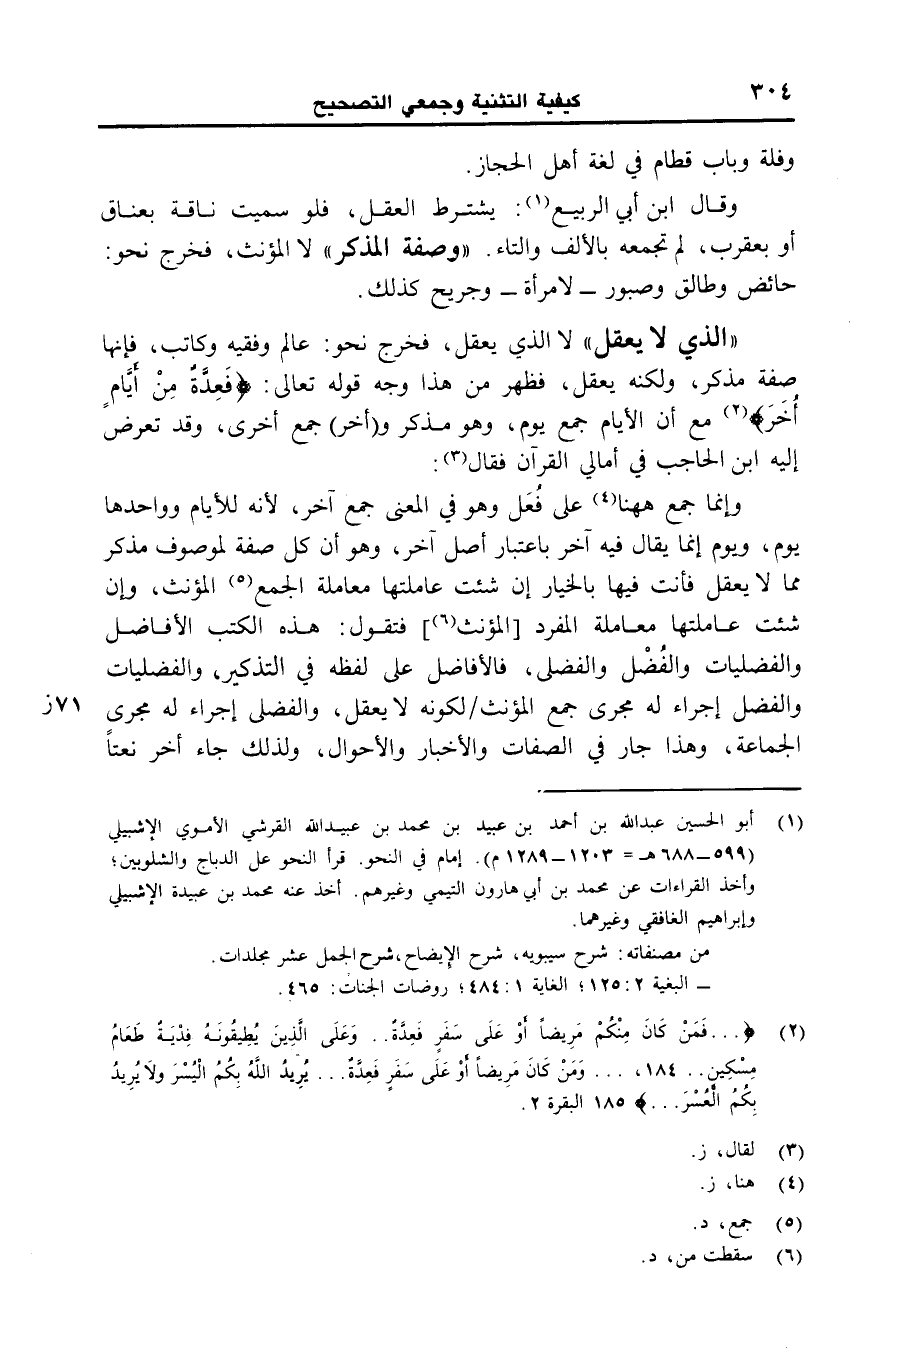 ٣٠٤
كيفية التثنية وجمعي التصحيح
وفلة وباب قطام في لغة أهل الحجاز.
وقال ابن أبي الربيع(١): يشترط العقل، فلو سميت ناقة بعناق
أو بعقرب، لم تجمعه بالألف والتاء. «وصفة المذكر» لا المؤنث، فخرج نحو:
حائض وطالق وصبور ــ لامرأة ــ وجريح كذلك.
«الذي لا يعقل» لا الذي يعقل، فخرج نحو: عالم وفقيه وكاتب، فإنها
صفة مذكر، ولكنه يعقل، فظهر من هذا وجه قوله تعالى: ﴿فَعِدَّةٌ مِنْ أَيَّامٍ
أُخَرَ﴾(٢) مع أن الأيام جمع يوم، وهو مذكر و(أخر) جمع أخرى، وقد تعرض
إليه ابن الحاجب في أمالي القرآن فقال(٣):
وإنما جمع ههنا(٤) على فُعَل وهو في المعنى جمع آخر، لأنه للأيام وواحدها
يوم، ويوم إنما يقال فيه آخر باعتبار أصل آخر، وهو أن كل صفة لموصوف مذكر
مما لا يعقل فأنت فيها بالخيار إن شئت عاملتها معاملة الجمع(٥) المؤنث، وإن
شئت عاملتها معاملة المفرد [المؤنث(٦)] فتقول: هذه الكتب الأفاضل
والفضليات والفُضْل والفضلى، فالأفاضل على لفظه في التذكير، والفضليات
والفضل إجراء له مجرى جمع المؤنث/لكونه لا يعقل، والفضلى إجراء له مجرى
٧١ز
الجماعة، وهذا جار في الصفات والأخبار والأحوال، ولذلك جاء أخر نعتاً
(١) أبو الحسين عبدالله بن أحمد بن عبيد بن محمد بن عبيدالله القرشي الأموي الإشبيلي
(٥٩٩ــ٦٨٨ هـ = ١٢٠٣ــ١٢٨٩ م). إمام في النحو. قرأ النحو على الدباج والشلوبين؛
وأخذ القراءات عن محمد بن أبي هارون التيمي وغيرهم. أخذ عنه محمد بن عبيدة الإشبيلي
وإبراهيم الغافقي وغيرهما.
من مصنفاته: شرح سيبويه، شرح الإيضاح، شرح الجمل عشر مجلدات.
ــ البغية ٢: ١٢٥؛ الغاية ١: ٤٨٤؛ روضات الجنات: ٤٦٥.
(٢) ﴿...فَمَنْ كَانَ مِنْكُمْ مَرِيضاً أَوْ عَلَى سَفَرٍ فَعِدَّةٌ.. وَعَلَى الَّذِينَ يُطِيقُونَهُ فِدْيَةٌ طَعَامُ
مِسْكِينٍ.. ١٨٤، ... وَمَنْ كَانَ مَرِيضاً أَوْ عَلَى سَفَرٍ فَعِدَّةٌ... يُرِيدُ اللَّهُ بِكُمُ الْيُسْرَ ولاَ يُرِيدُ
بِكُمُ الْعُسْرَ...﴾ ١٨٥ البقرة ٢.
(٣) لقال، ز.
(٤) هنا، ز.
(٥) جمع، د.
(٦) سقطت من، د.